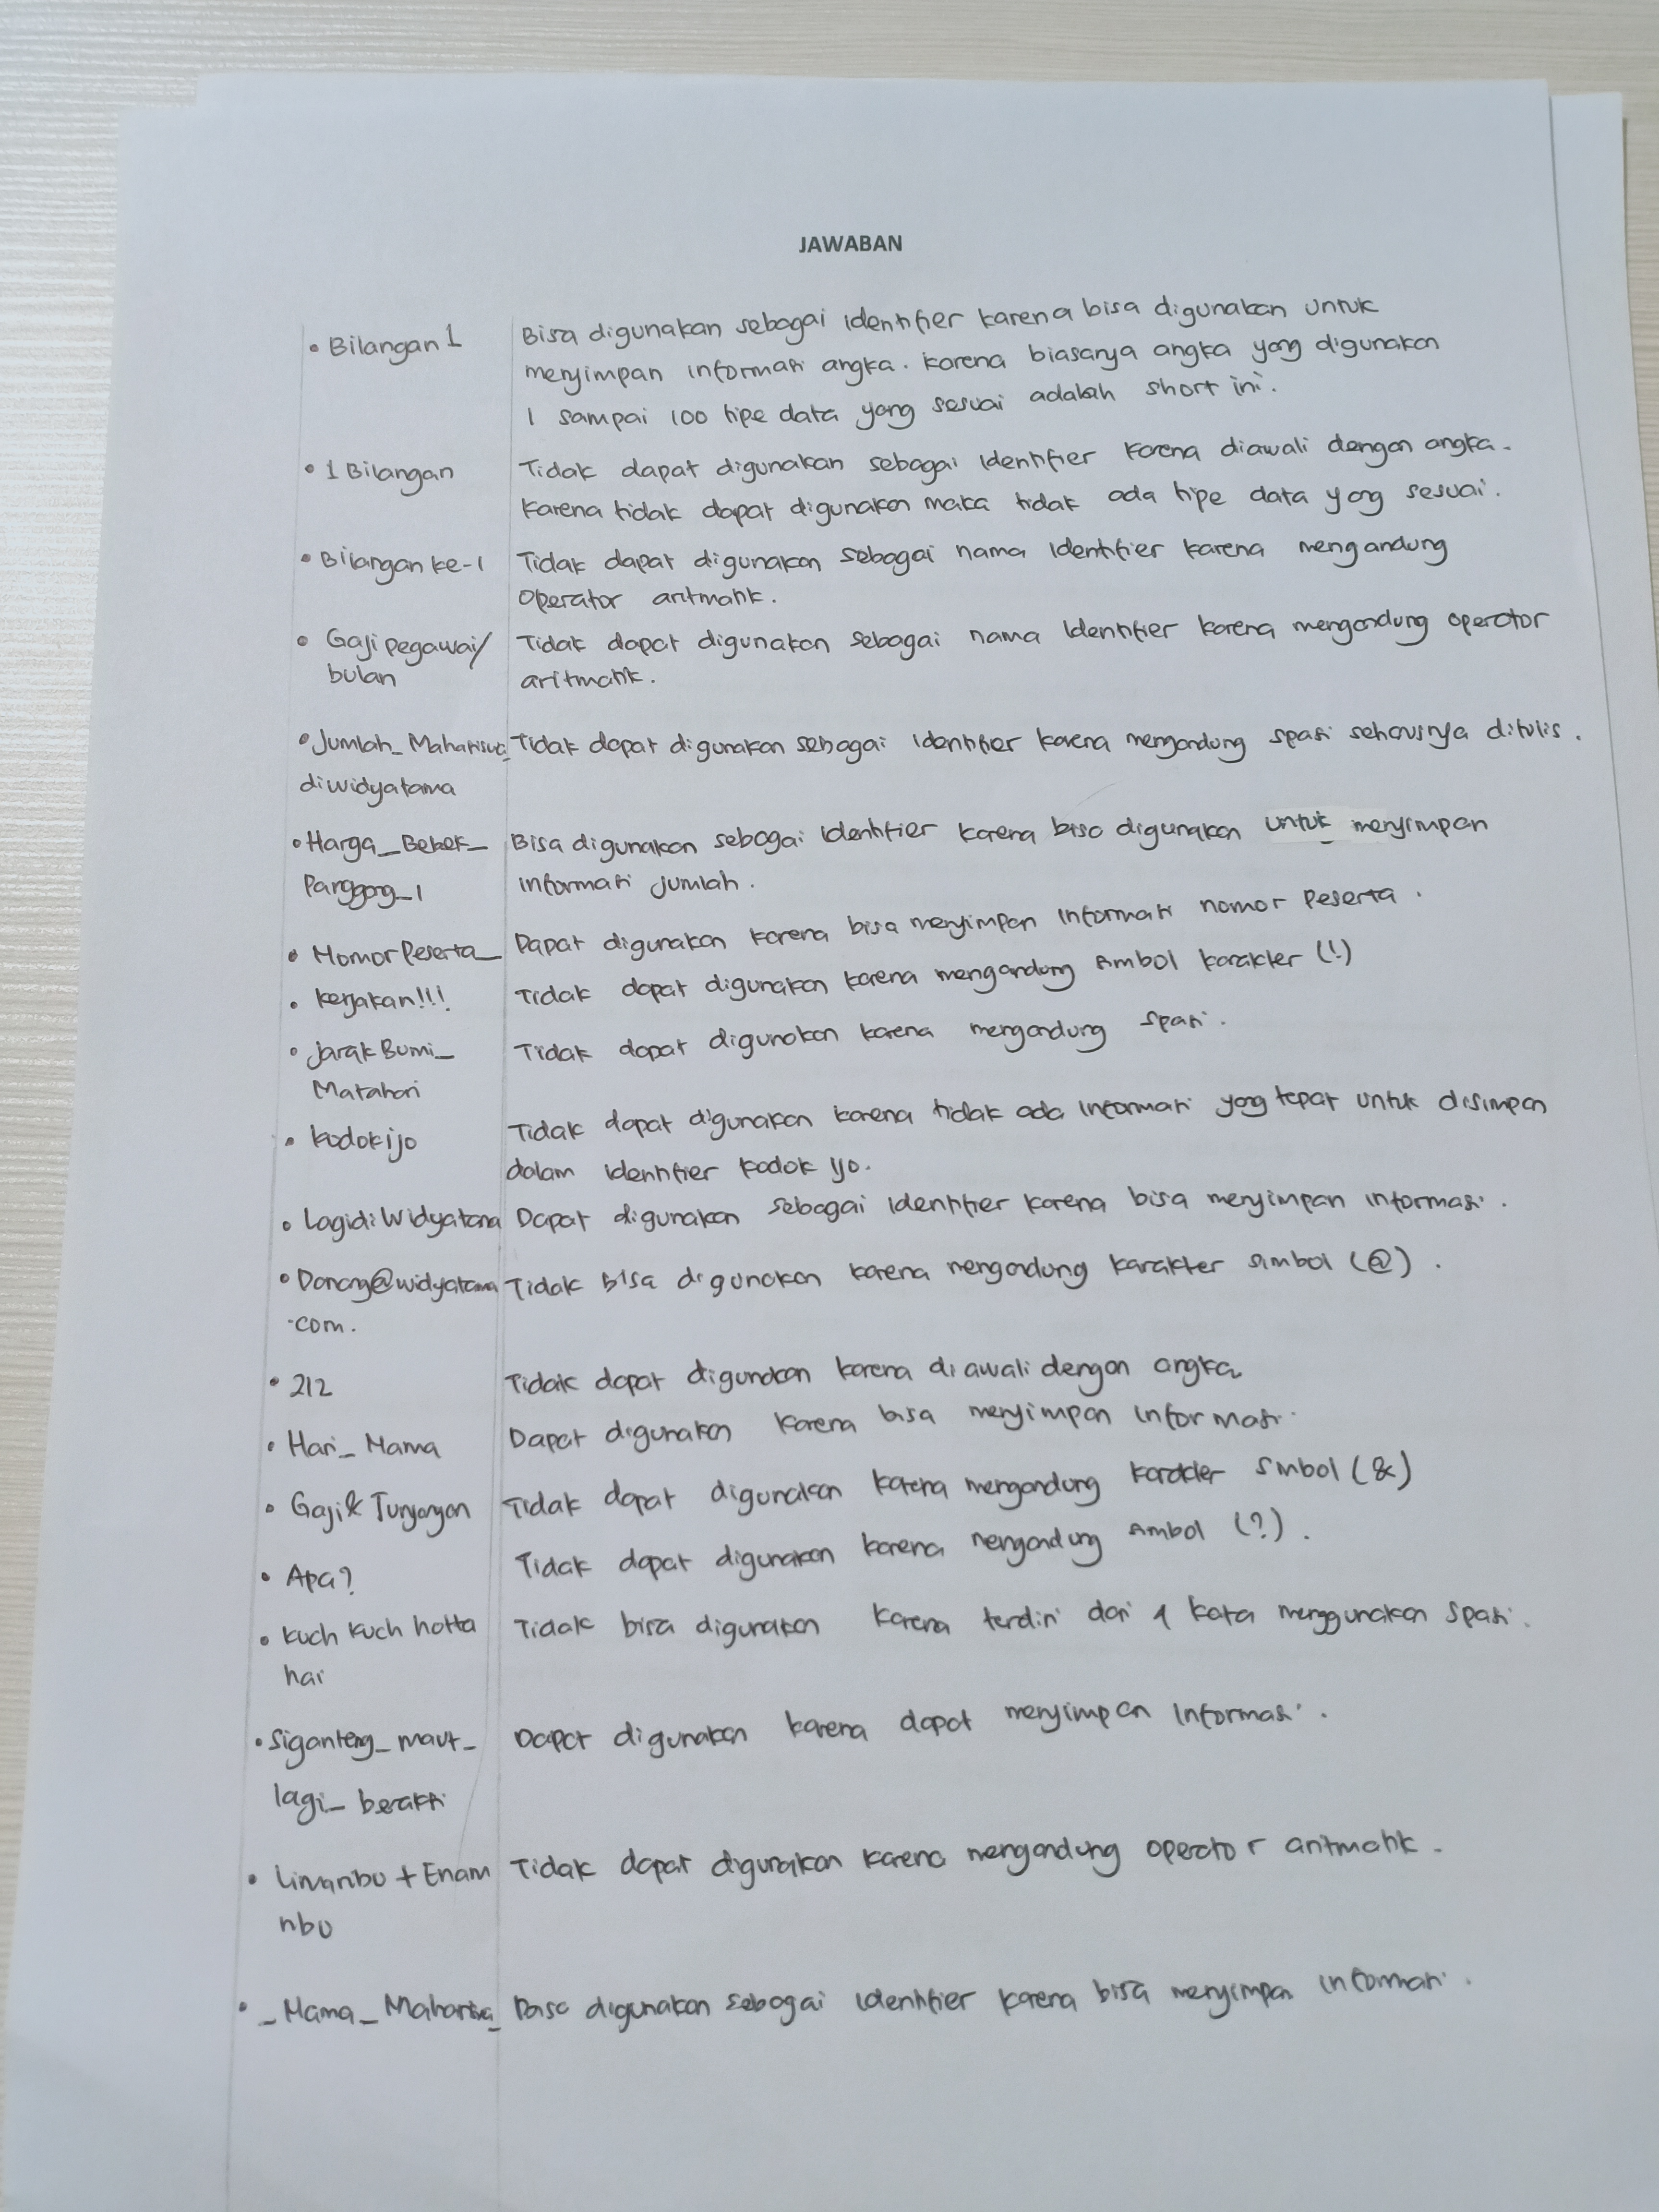 JAWABAN
• Bilangan 1 Bisa digunakan sebagai identifier karena bisa digunakan untuk
menyimpan informasi angka. karena biasanya angka yang digunakan
1 sampai 100 tipe data yang sesuai adalah short ini.
• 1 Bilangan Tidak dapat digunakan sebagai identifier karena diawali dengan angka.
karena tidak dapat digunakan maka tidak ada tipe data yang sesuai.
• Bilangan ke-1 Tidak dapat digunakan sebagai nama identifier karena mengandung
operator aritmatik.
• Gaji pegawai/ Tidak dapat digunakan sebagai nama identifier karena mengandung operator
bulan aritmatik.
• Jumlah_Mahasiswa_ Tidak dapat digunakan sebagai identifier karena mengandung spasi seharusnya ditulis.
diwidyatama
• Harga_Bebek_ Bisa digunakan sebagai identifier karena bisa digunakan untuk menyimpan
Panggang_1 informasi jumlah.
• NomorPeserta_ Dapat digunakan karena bisa menyimpan informasi nomor Peserta.
• kerjakan!!! Tidak dapat digunakan karena mengandung simbol karakter (!)
• jarak Bumi_ Tidak dapat digunakan karena mengandung spasi.
Matahari
• kodok ijo Tidak dapat digunakan karena tidak ada informasi yang tepat untuk disimpan
dalam identifier kodok ijo.
• Lagidi Widyatama Dapat digunakan sebagai identifier karena bisa menyimpan informasi.
• Danang@widyatama Tidak bisa digunakan karena mengandung karakter simbol (@).
.com.
• 212 Tidak dapat digunakan karena diawali dengan angka
• Hari_Nama Dapat digunakan karena bisa menyimpan informasi.
• Gaji & Tunjangan Tidak dapat digunakan karena mengandung karakter simbol (&)
• Apa? Tidak dapat digunakan karena mengandung simbol (?).
• kuch kuch hotta Tidak bisa digunakan karena terdiri dari 4 kata menggunakan spasi.
hai
• Siganteng_maut_ Dapat digunakan karena dapat menyimpan informasi.
lagi_beraksi
• Limaribu + Enam Tidak dapat digunakan karena mengandung operator aritmatik.
ribu
• _Nama_Mahasiswa_ Bisa digunakan sebagai identifier karena bisa menyimpan informasi.